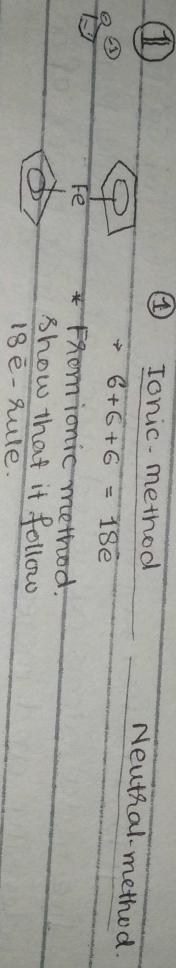 ①
① Ionic-method
Neutral-method.
→ 6+6+6 = 18e̅
Fe
* From ionic method.
show that it follow
18 e̅-rule.